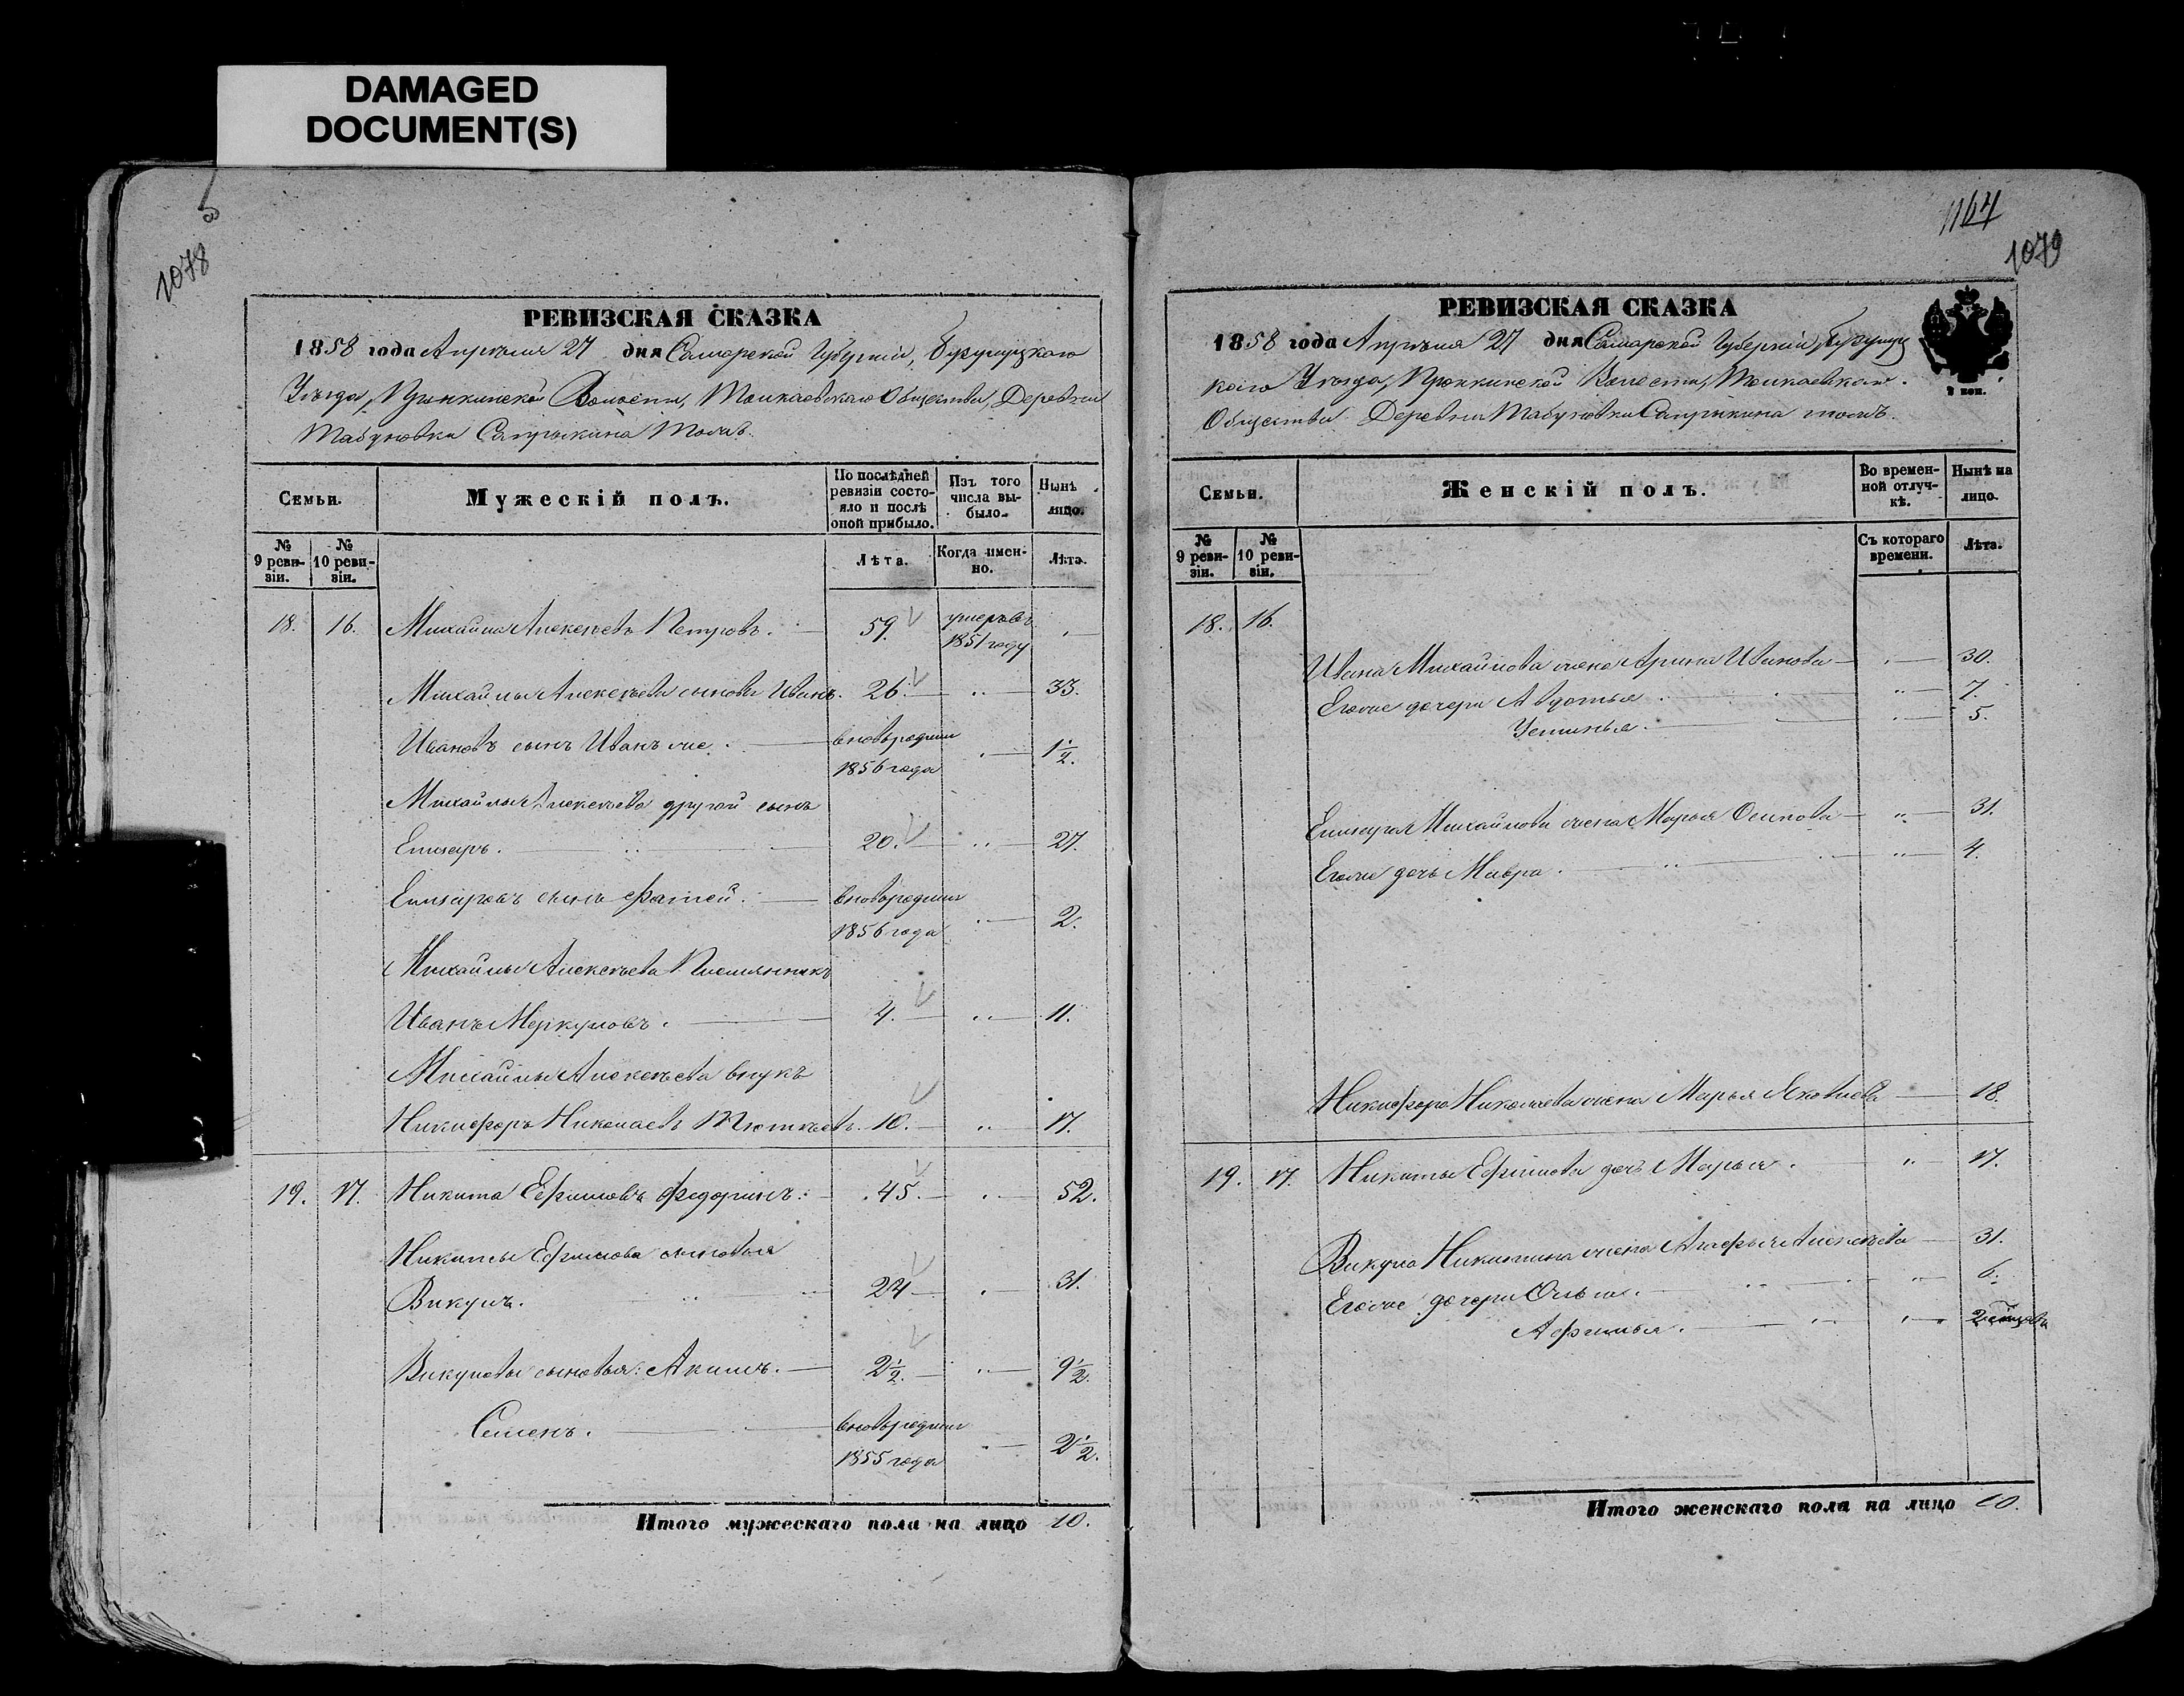 DAMAGED
DOCUMENT(S)
1078
РЕВИЗСКАЯ СКАЗКА
1858 года Апрѣля 27 дня Самарской Губерніи, Бузулуцкаго
Уѣзда, Пронкинской Волости, Толкаевскаго Общества, Деревни
Табуновки Сапрыкина тожъ.
Семьи.
Мужескій полъ.
По послѣдней ревизіи состояло и послѣ оной прибыло.
Изъ того числа выбыло.
Нынѣ на лицо.
№ 9 ревизіи.
№ 10 ревизіи.
Лѣта.
Когда именно.
Лѣта.
18. 16. Михайла Алексѣевъ Петровъ. 59. умеръ въ 1851 году
Михайлы Алексѣева сыновья Иванъ. 26. 33.
Ивановъ сынъ Иванъ же. вновьрожден 1856 года 1½.
Михайлы Алексѣева другой сынъ
Елизаръ. 20. 27.
Елизаровъ сынъ Фатей. вновьрожден 1856 года 2.
Михайлы Алексѣева Племянникъ
Иванъ Меркуловъ. 4. 11.
Михайлы Алексѣева внукъ
Никифоръ Николаевъ 10. 17.
19. 17. Никита Ефимовъ Федоринъ. 45. 52.
Никиты Ефимова сыновья
Викулъ. 24 31.
Викуловы сыновья: Акимъ. 2½. 9½.
Семенъ. вновьрожден 1855 года 2½.
Итого мужескаго пола на лицо 10.
1164
1079
РЕВИЗСКАЯ СКАЗКА
1858 года Апрѣля 27 дня Самарской Губерніи, Бузулуц
каго Уѣзда, Пронкинской Волости, Толкаевскаго
Общества Деревни Табуновки Сапрыкина тожъ.
2 коп.
Семьи.
Женскій полъ.
Во временной отлучкѣ.
Нынѣ на лицо.
№ 9 ревизіи.
№ 10 ревизіи.
Съ котораго времени.
Лѣта.
18. 16.
Ивана Михайлова жена Арина Иванова 30.
Его же дочери Авдотья 7.
Устинья. 5.
Елизара Михайлова жена Марья Осипова 31.
Его же дочь Мавра. 4.
Никифора Николаева жена Марья Яковлева 18.
19. 17. Никиты Ефимова дочь Марья. 17.
Викула Никитина жена Агафья Алексѣева 31.
Его же дочери 6.
Афимья. 2
Итого женскаго пола на лицо 10.